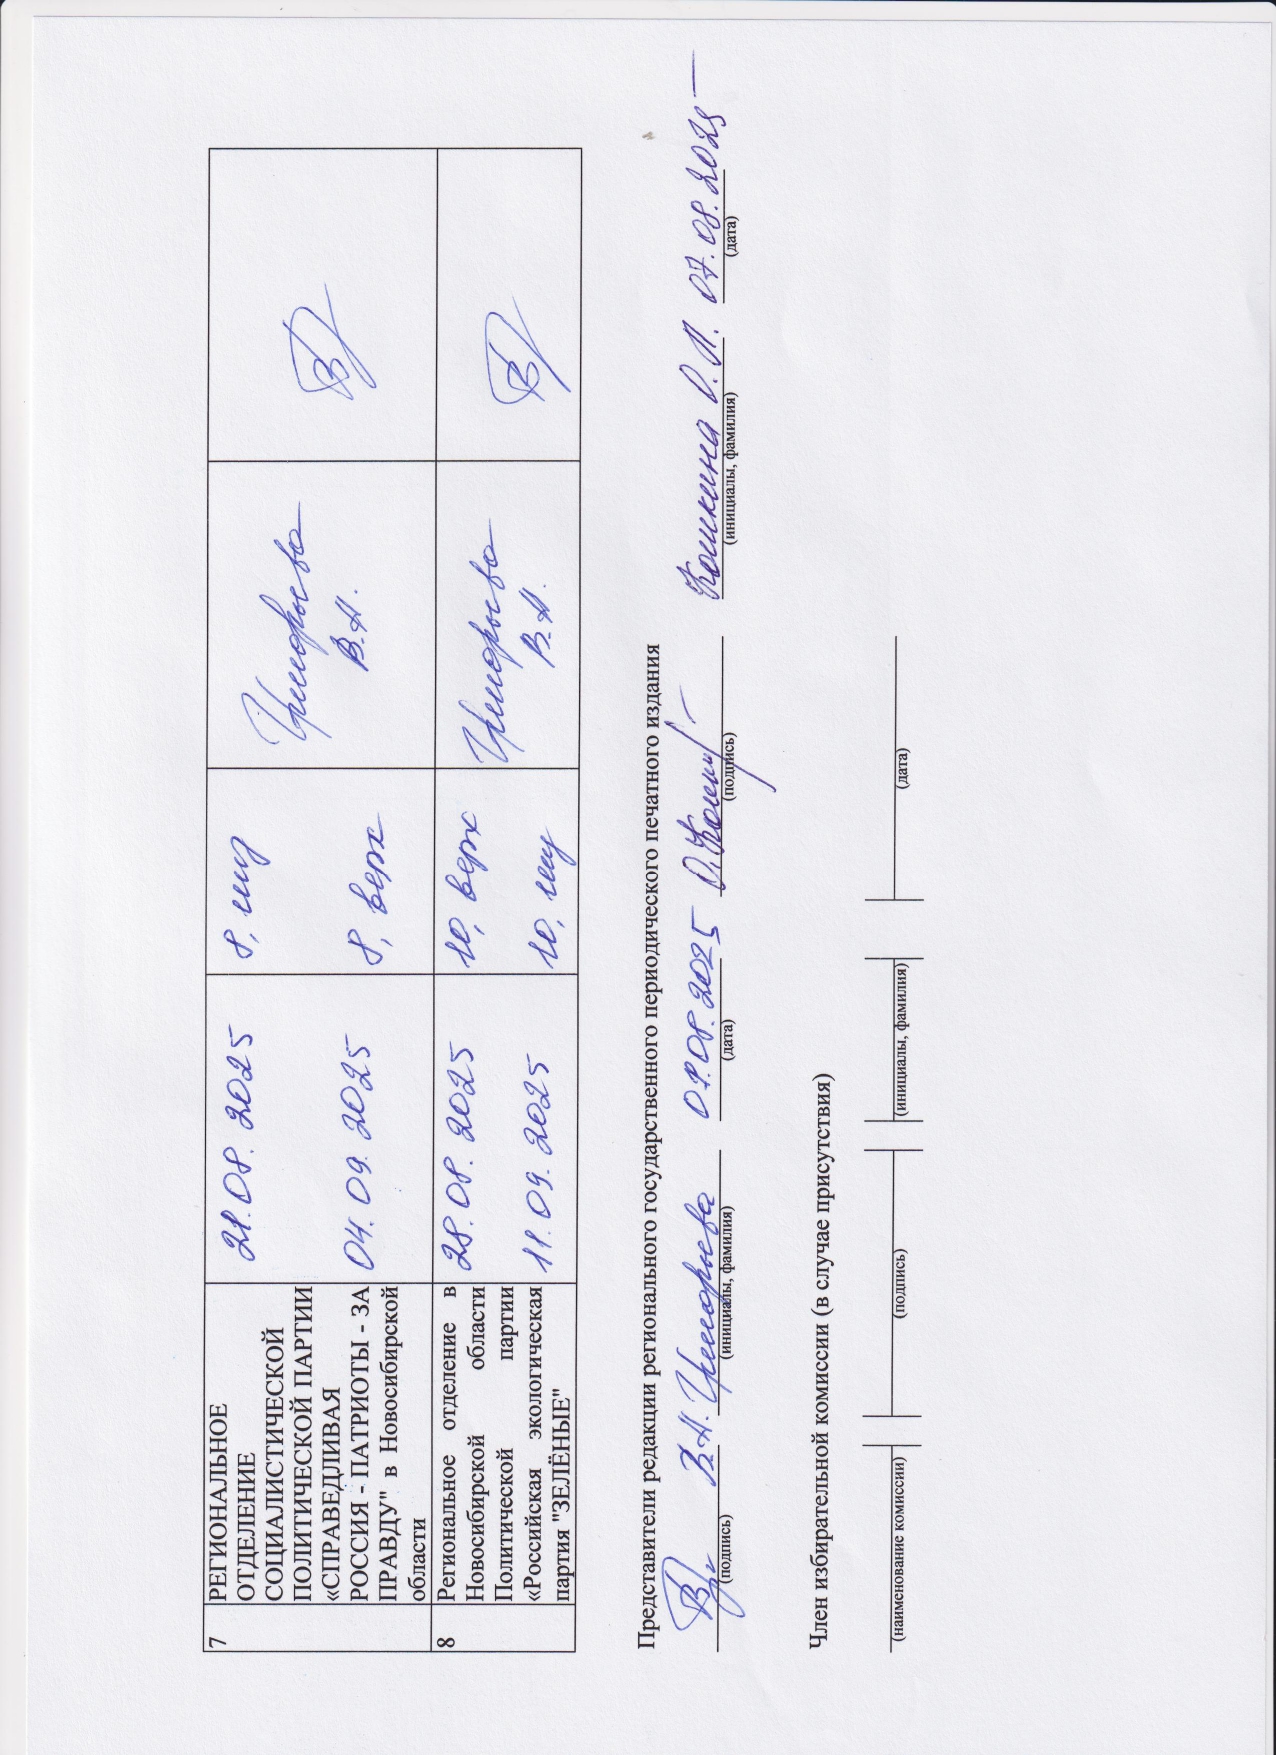 7
РЕГИОНАЛЬНОЕ
ОТДЕЛЕНИЕ
СОЦИАЛИСТИЧЕСКОЙ
ПОЛИТИЧЕСКОЙ ПАРТИИ
«СПРАВЕДЛИВАЯ
РОССИЯ - ПАТРИОТЫ - ЗА
ПРАВДУ" в Новосибирской
области
21.08.2025
04.09.2025
8, низ
8, верх
В.Н.
8
Региональное отделение в
Новосибирской области
Политической партии
«Российская экологическая
партия "ЗЕЛЁНЫЕ"
28.08.2025
11.09.2025
10, верх
10, низ
В.Н.
Представители редакции регионального государственного периодического печатного издания
В.Н. 07.08.2025 Кошкина О.П. 07.08.2025
(подпись) (инициалы, фамилия) (дата) (подпись) (инициалы, фамилия) (дата)
Член избирательной комиссии (в случае присутствия)
(наименование комиссии) (подпись) (инициалы, фамилия) (дата)